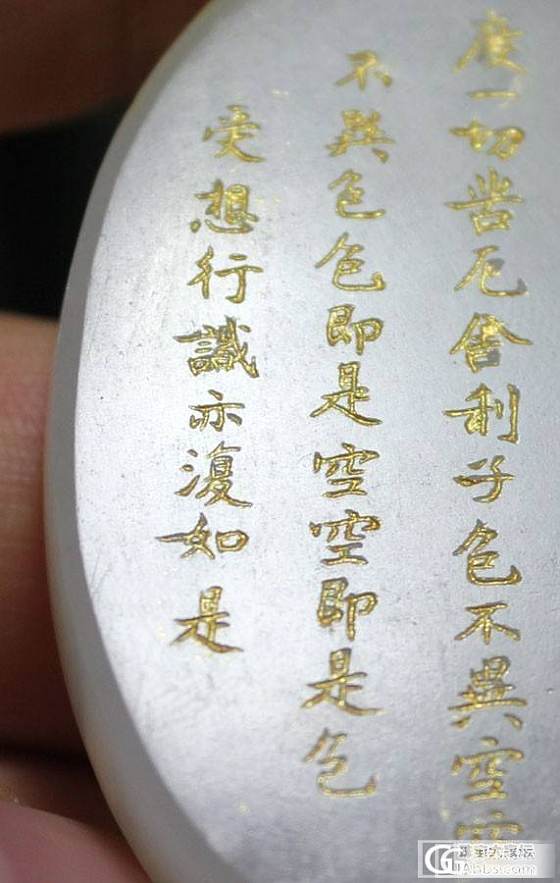 度一切苦厄舍利子色不異空空
不異色色即是空空即是色
受想行識亦復如是